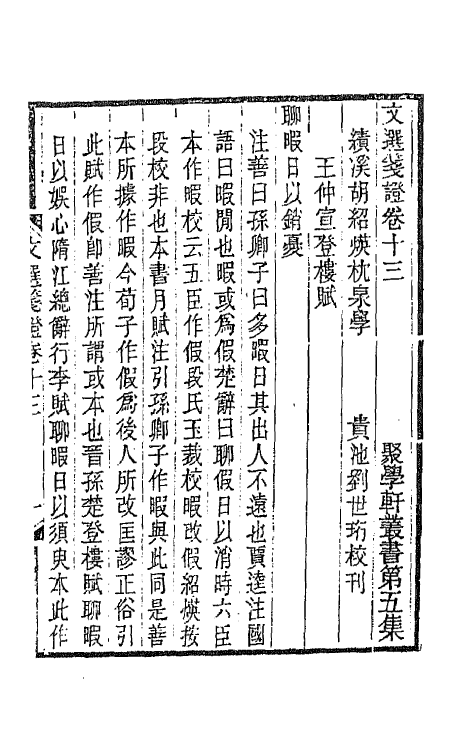 文選箋證卷十三
聚學軒叢書第五集
績溪胡紹煐枕泉學
貴池劉世珩校刊
王仲宣登樓賦
聊暇日以銷憂
注善曰孫卿子曰多暇日其出人不遠也賈逵注國
語曰暇閒也暇或爲假楚辭曰聊假日以消時六臣
本作暇校云五臣作假段氏玉裁校暇改假紹煐按
段校非也本書月賦注引孫卿子作暇與此同是善
本所據作暇今荀子作假爲後人所改匡謬正俗引
此賦作假卽善注所謂或本也晉孫楚登樓賦聊暇
日以娛心隋江總辭行李賦聊暇日以須臾本此作
文選箋證卷十三
一